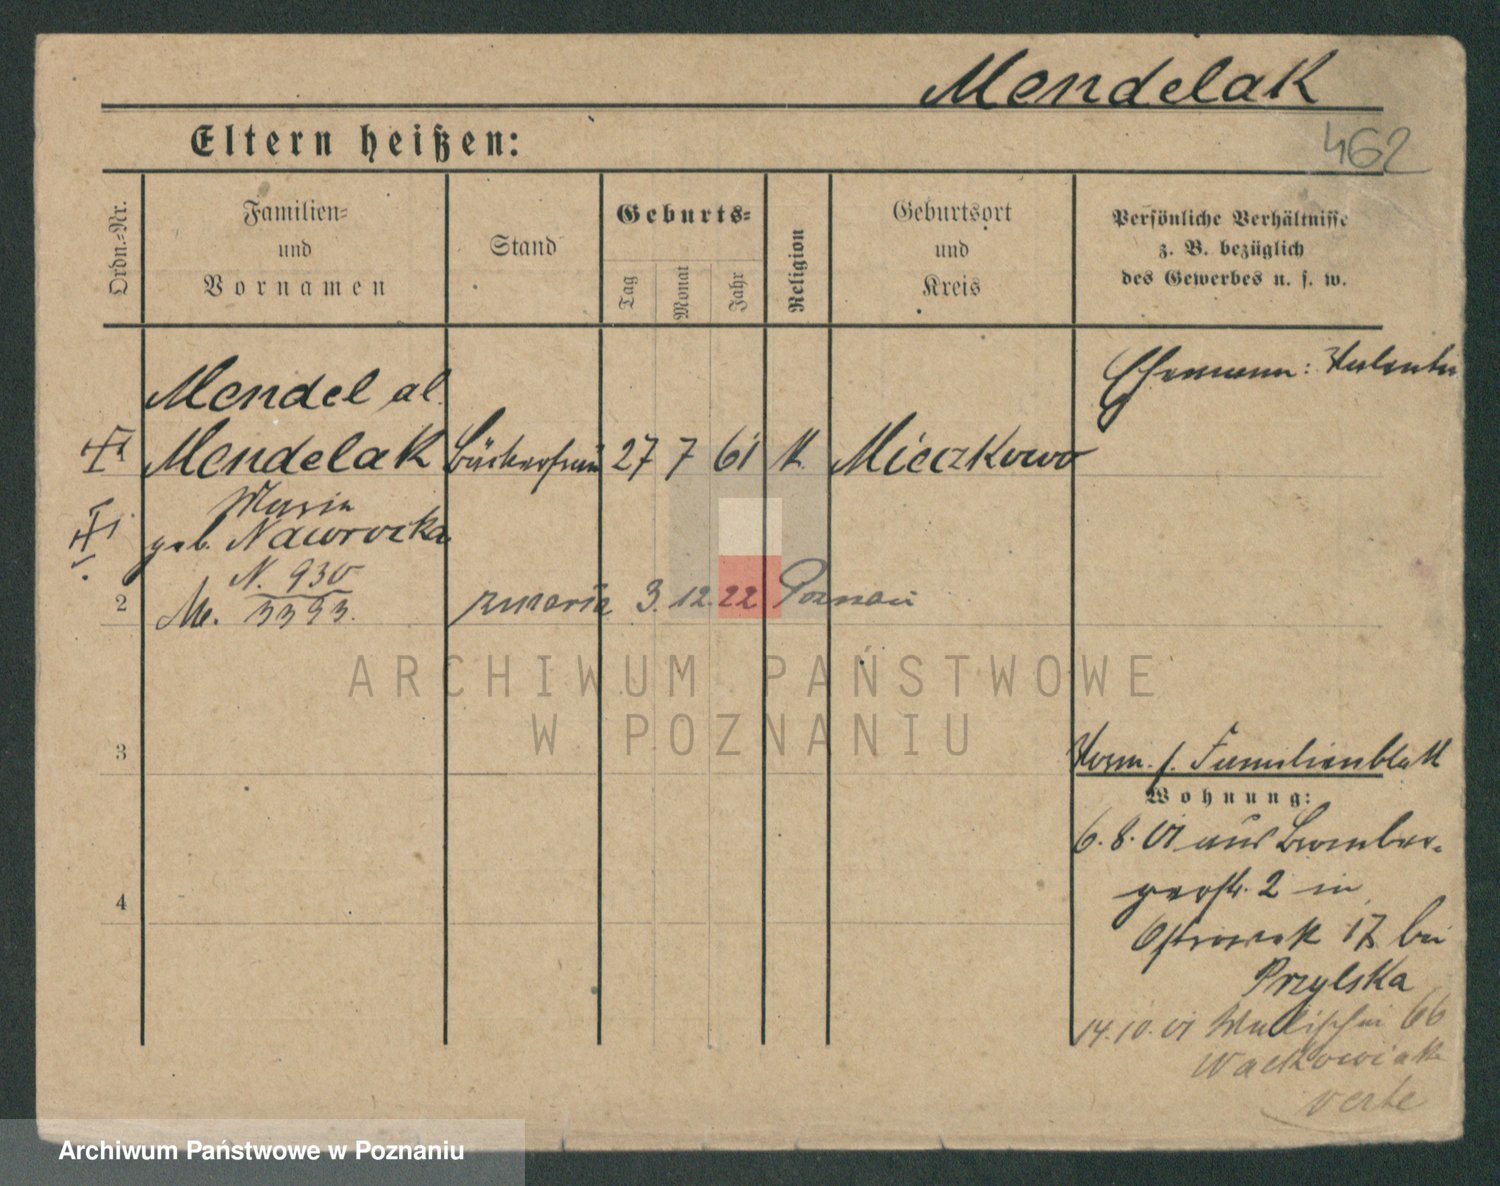 Mendelak
462
Eltern heißen:
Ordn.-Nr.
Familien-
und
Vornamen
Stand
Geburts-
Tag
Monat
Jahr
Religion
Geburtsort
und
Kreis
Persönliche Verhältnisse
z. B. bezüglich
des Gewerbes u. s. w.
Ehemann: Valentin
Mendel al.
Mendelak Bäckerfrau 27 7 61 k. Mieczkowo
Maria
geb. Nawrocka
N. 930
2 Me. 3393. zmarła 3. 12. 22 Poznań
ARCHIWUM PAŃSTWOWE
W POZNANIU
3
Vorm. s. Familienblatt
Wohnung:
6. 8. 01 aus Bromber-
gerstr. 2 in
4
Ostrowek 17 bei
Przylska
14. 10. 01 Wallischei 66
Wackowiak
verte
Archiwum Państwowe w Poznaniu